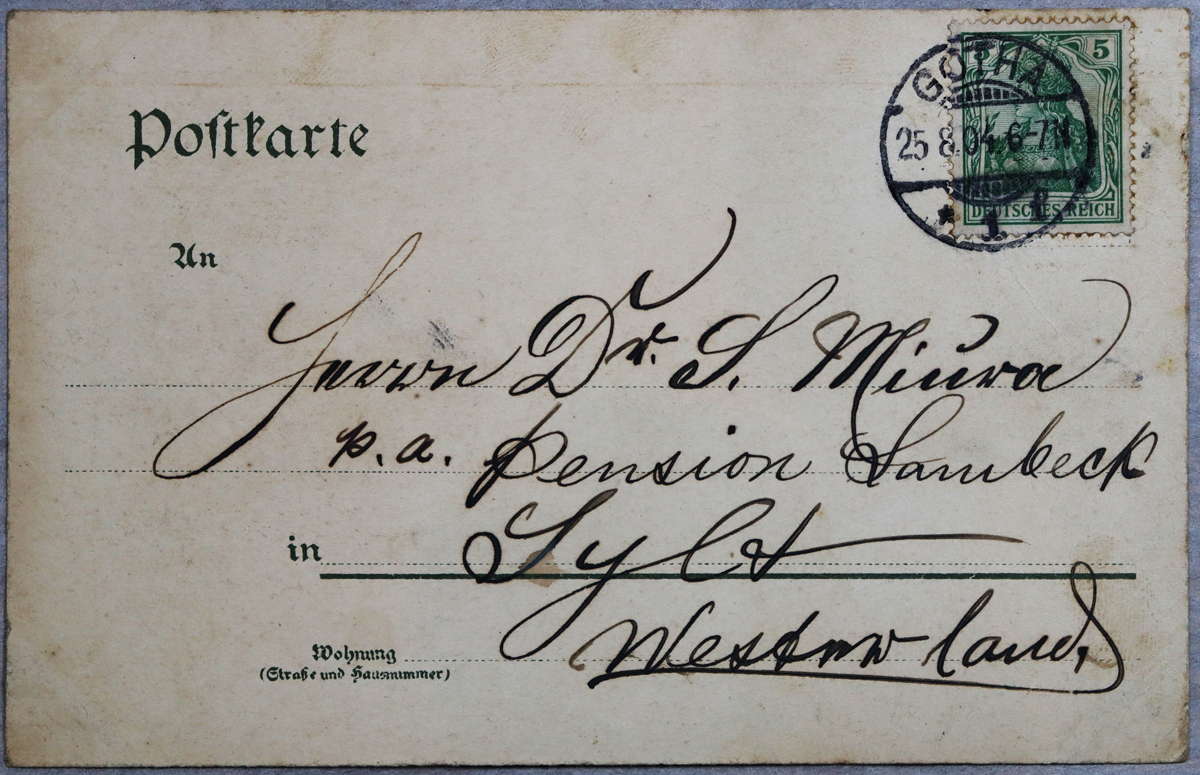 Postkarte
5 5
GOTHA
25 8.04. 6-7N
* 1 e
DEUTSCHES REICH
An
Herrn Dr. S. Miura
p. a. Pension Lambeck
in Sylt
Westerland,
Wohnung
(Straße und Hausnummer)